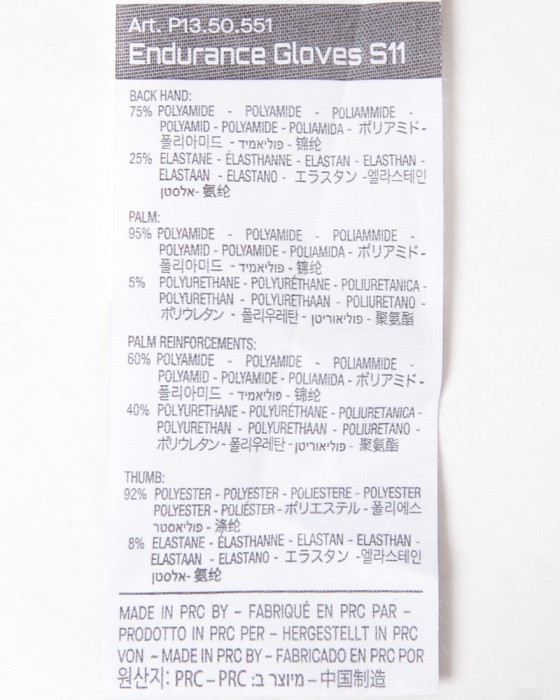 Art. P13.50.551
Endurance Gloves S11
BACK HAND:
75% POLYAMIDE - POLYAMIDE - POLIAMMIDE -
POLYAMID - POLYAMIDE - POLIAMIDA - ポリアミド -
폴리아미드 - פוליאמיד - 锦纶
25% ELASTANE - ÉLASTHANNE - ELASTAN - ELASTHAN -
ELASTAAN - ELASTANO - エラスタン -엘라스테인
אלסטן- 氨纶
PALM:
95% POLYAMIDE - POLYAMIDE - POLIAMMIDE -
POLYAMID - POLYAMIDE - POLIAMIDA - ポリアミド -
폴리아미드 - פוליאמיד - 锦纶
5% POLYURETHANE - POLYURÉTHANE - POLIURETANICA -
POLYURETHAN - POLYURETHAAN - POLIURETANO -
ポリウレタン - 폴리우레탄 - פוליאוריטן - 聚氨酯
PALM REINFORCEMENTS:
60% POLYAMIDE - POLYAMIDE - POLIAMMIDE -
POLYAMID - POLYAMIDE - POLIAMIDA - ポリアミド -
폴리아미드 - פוליאמיד - 锦纶
40% POLYURETHANE - POLYURÉTHANE - POLIURETANICA -
POLYURETHAN - POLYURETHAAN - POLIURETANO -
ポリウレタン - 폴리우레탄 - פוליאוריטן - 聚氨酯
THUMB:
92% POLYESTER - POLYESTER - POLIESTERE - POLYESTER
POLYESTER - POLIÉSTER - ポリエステル - 폴리에스
פוליאסטר - 涤纶
8% ELASTANE - ÉLASTHANNE - ELASTAN - ELASTHAN -
ELASTAAN - ELASTANO - エラスタン -엘라스테인
אלסטן- 氨纶
MADE IN PRC BY – FABRIQUÉ EN PRC PAR –
PRODOTTO IN PRC PER – HERGESTELLT IN PRC
VON – MADE IN PRC BY – FABRICADO EN PRC POR
원산지: PRC – PRC :מיוצר ב – 中国制造